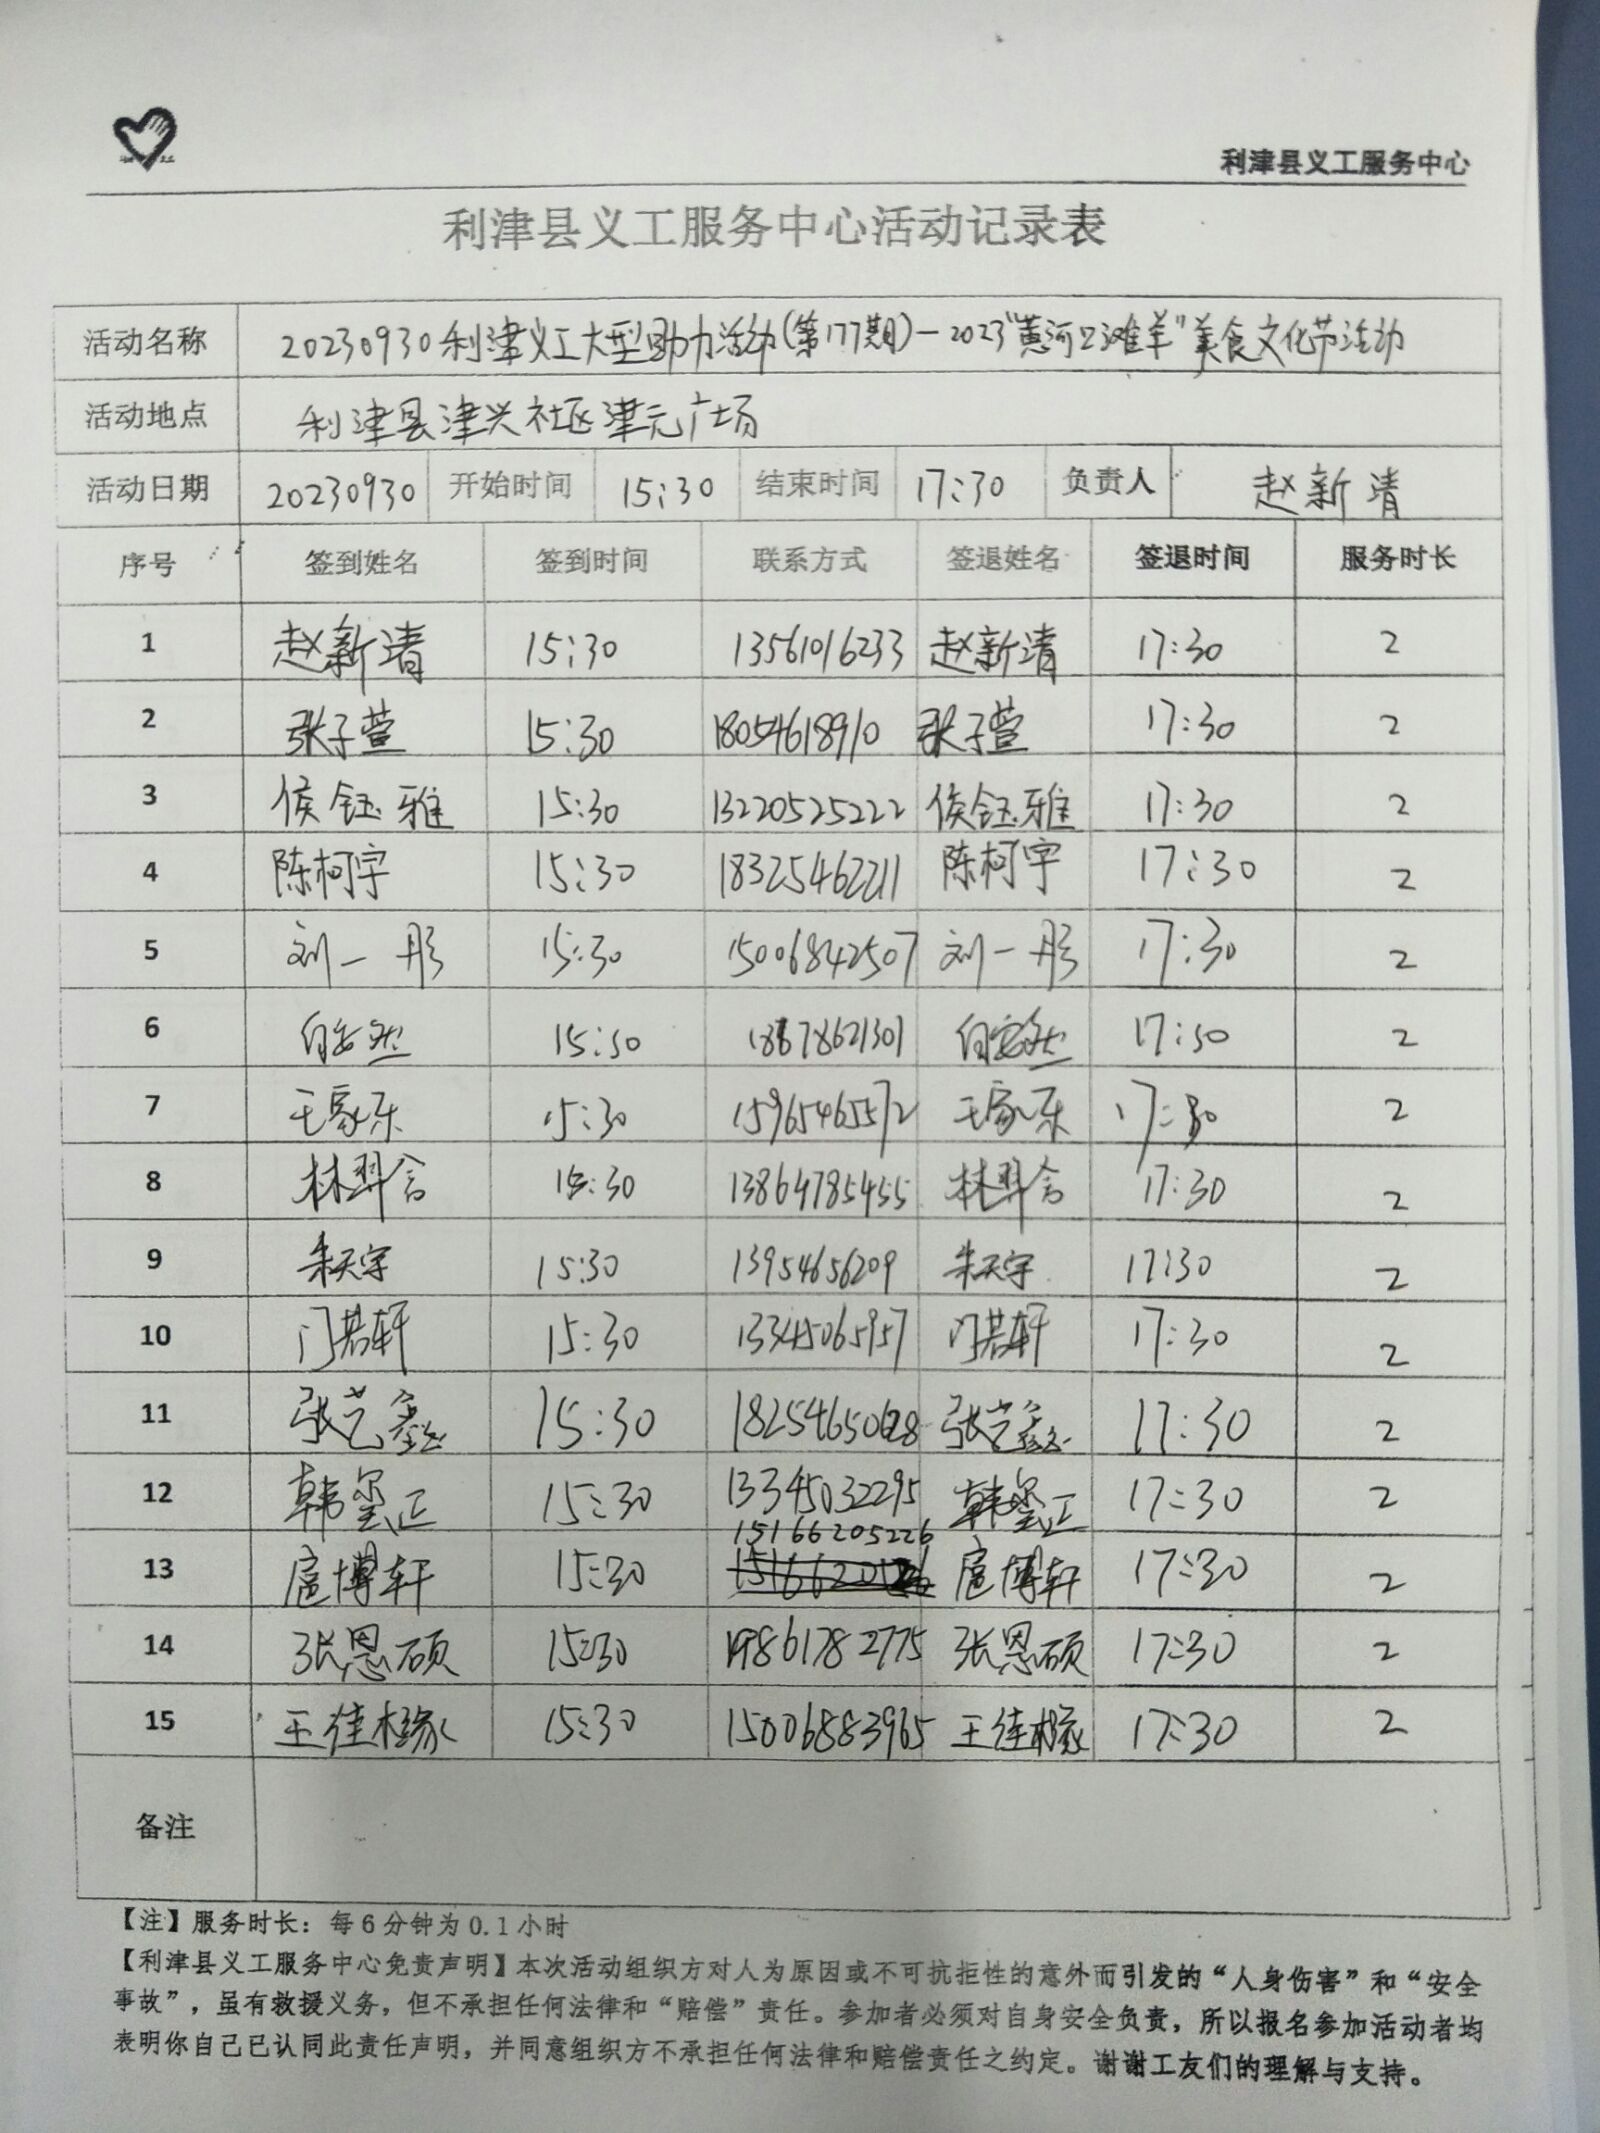 利津县义工服务中心
利津县义工服务中心活动记录表
活动名称 20230930利津义工大型助力活动(第177期)—2023"黄河口滩羊"美食文化节活动
活动地点 利津县津兴社区津元广场
活动日期 20230930 开始时间 15:30 结束时间 17:30 负责人 赵新清
序号 签到姓名 签到时间 联系方式 签退姓名 签退时间 服务时长
1 赵新清 15:30 13561016233 赵新清 17:30 2
2 张子萱 15:30 18054618910 张子萱 17:30 2
3 侯钰雅 15:30 13220525222 侯钰雅 17:30 2
4 陈柯宇 15:30 18325462211 陈柯宇 17:30 2
5 刘一彤 15:30 15006842507 刘一彤 17:30 2
6 白安然 15:30 白安然 17:30 2
7 王家乐 15:30 15965465572 王家乐 17:30 2
8 林羿含 15:30 13864785455 林羿含 17:30 2
9 朱天宇 15:30 13954656209 朱天宇 17:30 2
10 门若轩 15:30 13345065957 门若轩 17:30 2
11 张艺鑫 15:30 张艺鑫 17:30 2
12 韩玺正 15:30 13345032295 韩玺正 17:30 2
13 扈博轩 15:30 15166205226 扈博轩 17:30 2
14 张恩硕 15:30 19861782775 张恩硕 17:30 2
15 王佳橼 15:30 15006883965 王佳橼 17:30 2
备注
【注】服务时长：每6分钟为0.1小时
【利津县义工服务中心免责声明】本次活动组织方对人为原因或不可抗拒性的意外而引发的“人身伤害”和“安全
事故”，虽有救援义务，但不承担任何法律和“赔偿”责任。参加者必须对自身安全负责，所以报名参加活动者均
表明你自己已认同此责任声明，并同意组织方不承担任何法律和赔偿责任之约定。谢谢工友们的理解与支持。